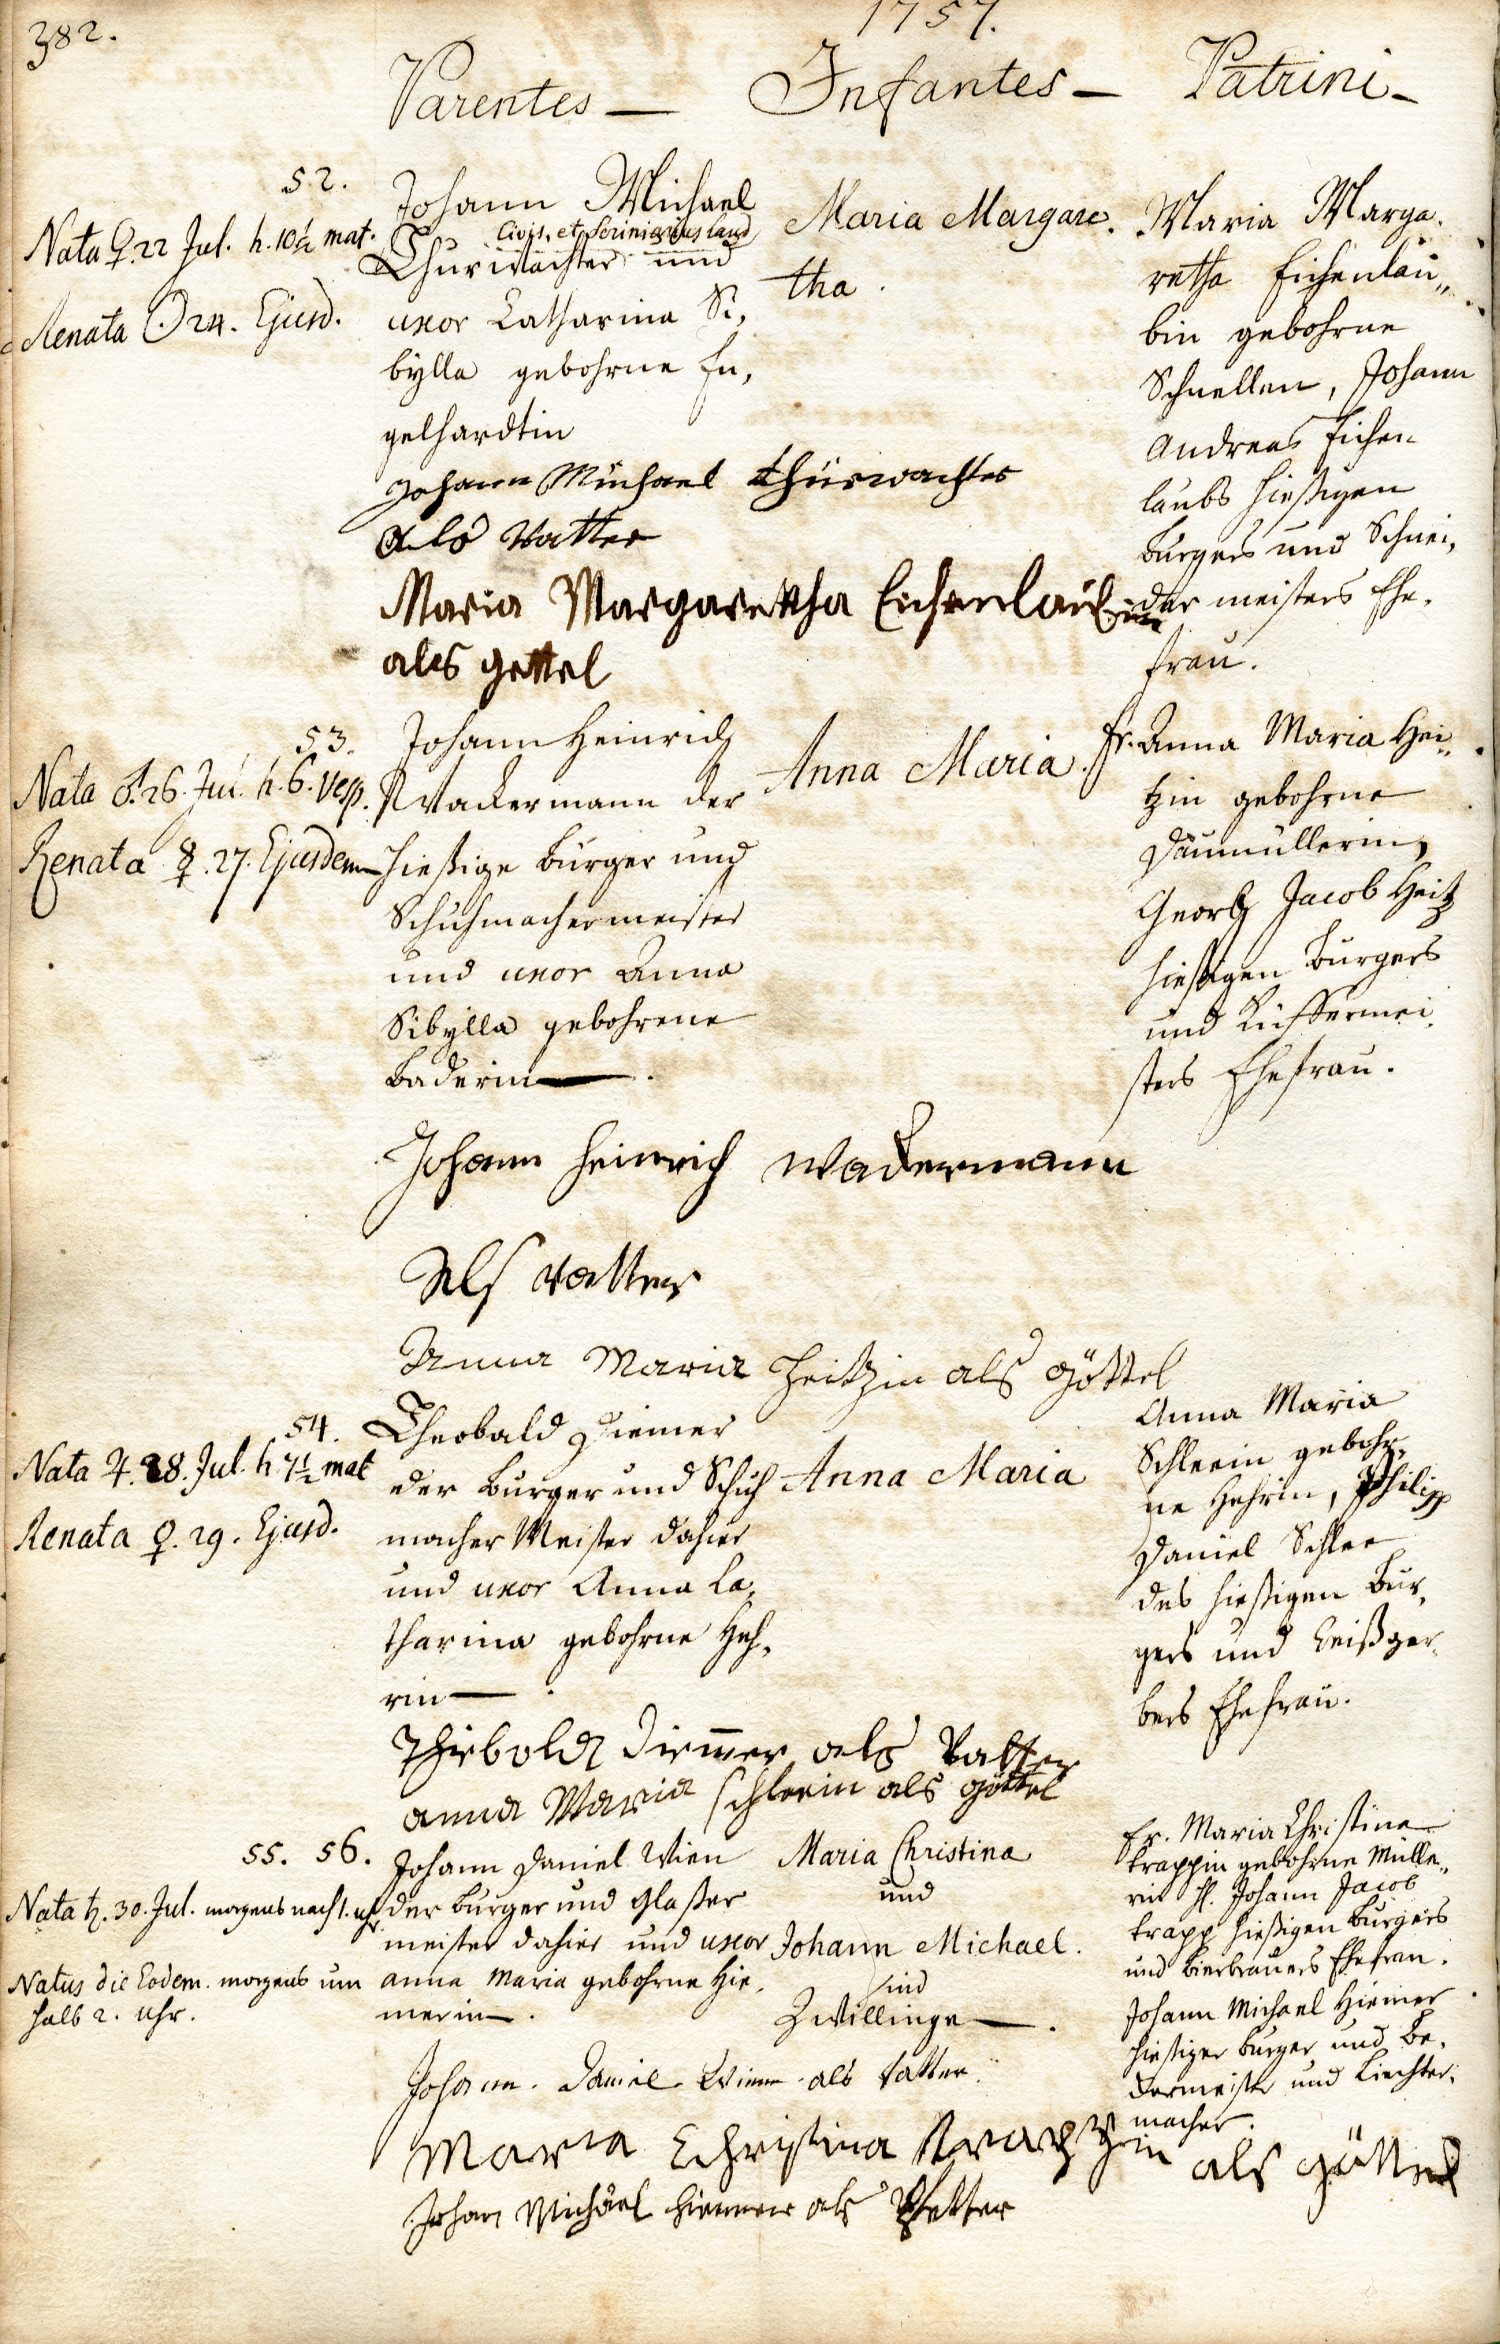 382.
1757.
Parentes — Infantes — Patrini —
52.
Nata ♀. 22 Jul. h. 10½ mat.
Renata ☉ 24. Ejusd.
Johann Michael
Civis et Scriniarius
Thürwächter und
uxor Catharina Si,
bylla gebohrne En,
gelhardtin
Maria Margare,
tha.
Maria Marga,
retha Eichenlau,,
bin gebohrne
Schnellen, Johann
Andreas Eichen
laubs hießigen
burgers und Schnei,
der meisters Ehe,
frau.
Johann Michael Thürwachter
als Vatter
Maria Margaretha Eichenlaubin
als gettel
53.
Nata ♂. 26. Jul. h. 6. Vesp.
Renata ☿. 27. Ejusdem
Johann Heinrich
Wackermann der
hießige burger und
Schuhmachermeister
und uxor Anna
Sibylla gebohrene
baderin — .
Anna Maria.
Fr. Anna Maria Hei,,
tzin gebohrne
Daumüllerin,
Georg Jacob Heitz
hießigen burgers
und Küffermei,
sters Ehefrau.
Johann Heinrich Wackermann
Als Vatter
Anna Maria Heitzin als göttel
54.
Nata ♃. 28. Jul. h 7½ mat
Renata ♀. 29. Ejusd.
Theobald Diemer
der burger und Schuh
macher Meister dahier
und uxor Anna Ca,
tharina gebohrne Heh,
rin — .
Anna Maria
Anna Maria
Schleein gebohr,
ne Hehrin, Philipp
Daniel Schlee
des hießigen bur,
gers und Weißger,
bers Ehefrau.
Thiebold Diemer als Vatter
anna Maria schleein als göttel
55. 56.
Nata ♄. 30. Jul. morgens nach 1. uhr
Natus die Eodem. morgens um
halb 2. uhr.
Johann Daniel Wien
der burger und Glaßer
meister dahier und uxor
anna Maria gebohrne Hie,
merin — .
Maria Christina
und
Johann Michael.
sind
Zwillinge — .
Fr. Maria Christina
Krappin gebohrne Mülle,,
rin H. Johann Jacob
Krapp hießigen burgers
und bierbrauers Ehefrau.
Johann Michael Hiemer
hießiger burger und
und Liechter,
macher.
Johann. Daniel Wienn als Vatter.
Maria Christina als göttel
Johan Michael Hiemer als Pfetter